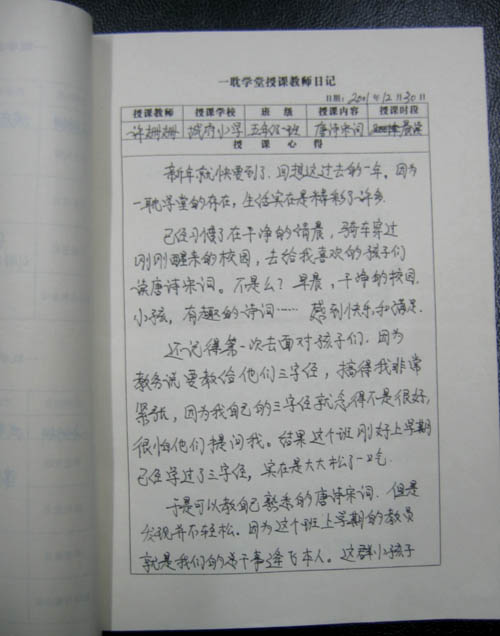 一耽学堂授课教师日记
日期：2001年12月30日
授课教师 授课学校 班 级 授课内容 授课时段
许姗姗 城府小学 五年级一班 唐诗宋词 晨读
授 课 心 得
新年就快要到了．回想这过去的一年，因为
一耽学堂的存在，生活实在是精彩了许多．
已经习惯了在干净的清晨，骑车穿过
刚刚醒来的校园，去给我喜欢的孩子们
读唐诗宋词。不是么？早晨，干净的校园，
小孩，有趣的诗词…… 感到快乐和满足．
还记得第一次去面对孩子们．因为
教务说要教给他们三字经，搞得我非常
紧张，因为我自己的三字经就念得不是很好，
很怕他们提问我。结果这个班刚好上学期
已经学过了三字经，实在是大大松了一口气．
于是可以教自己熟悉的唐诗宋词．但是
发现并不轻松．因为这个班上学期的教员
就是我们的总干事逄飞本人．这群小孩子